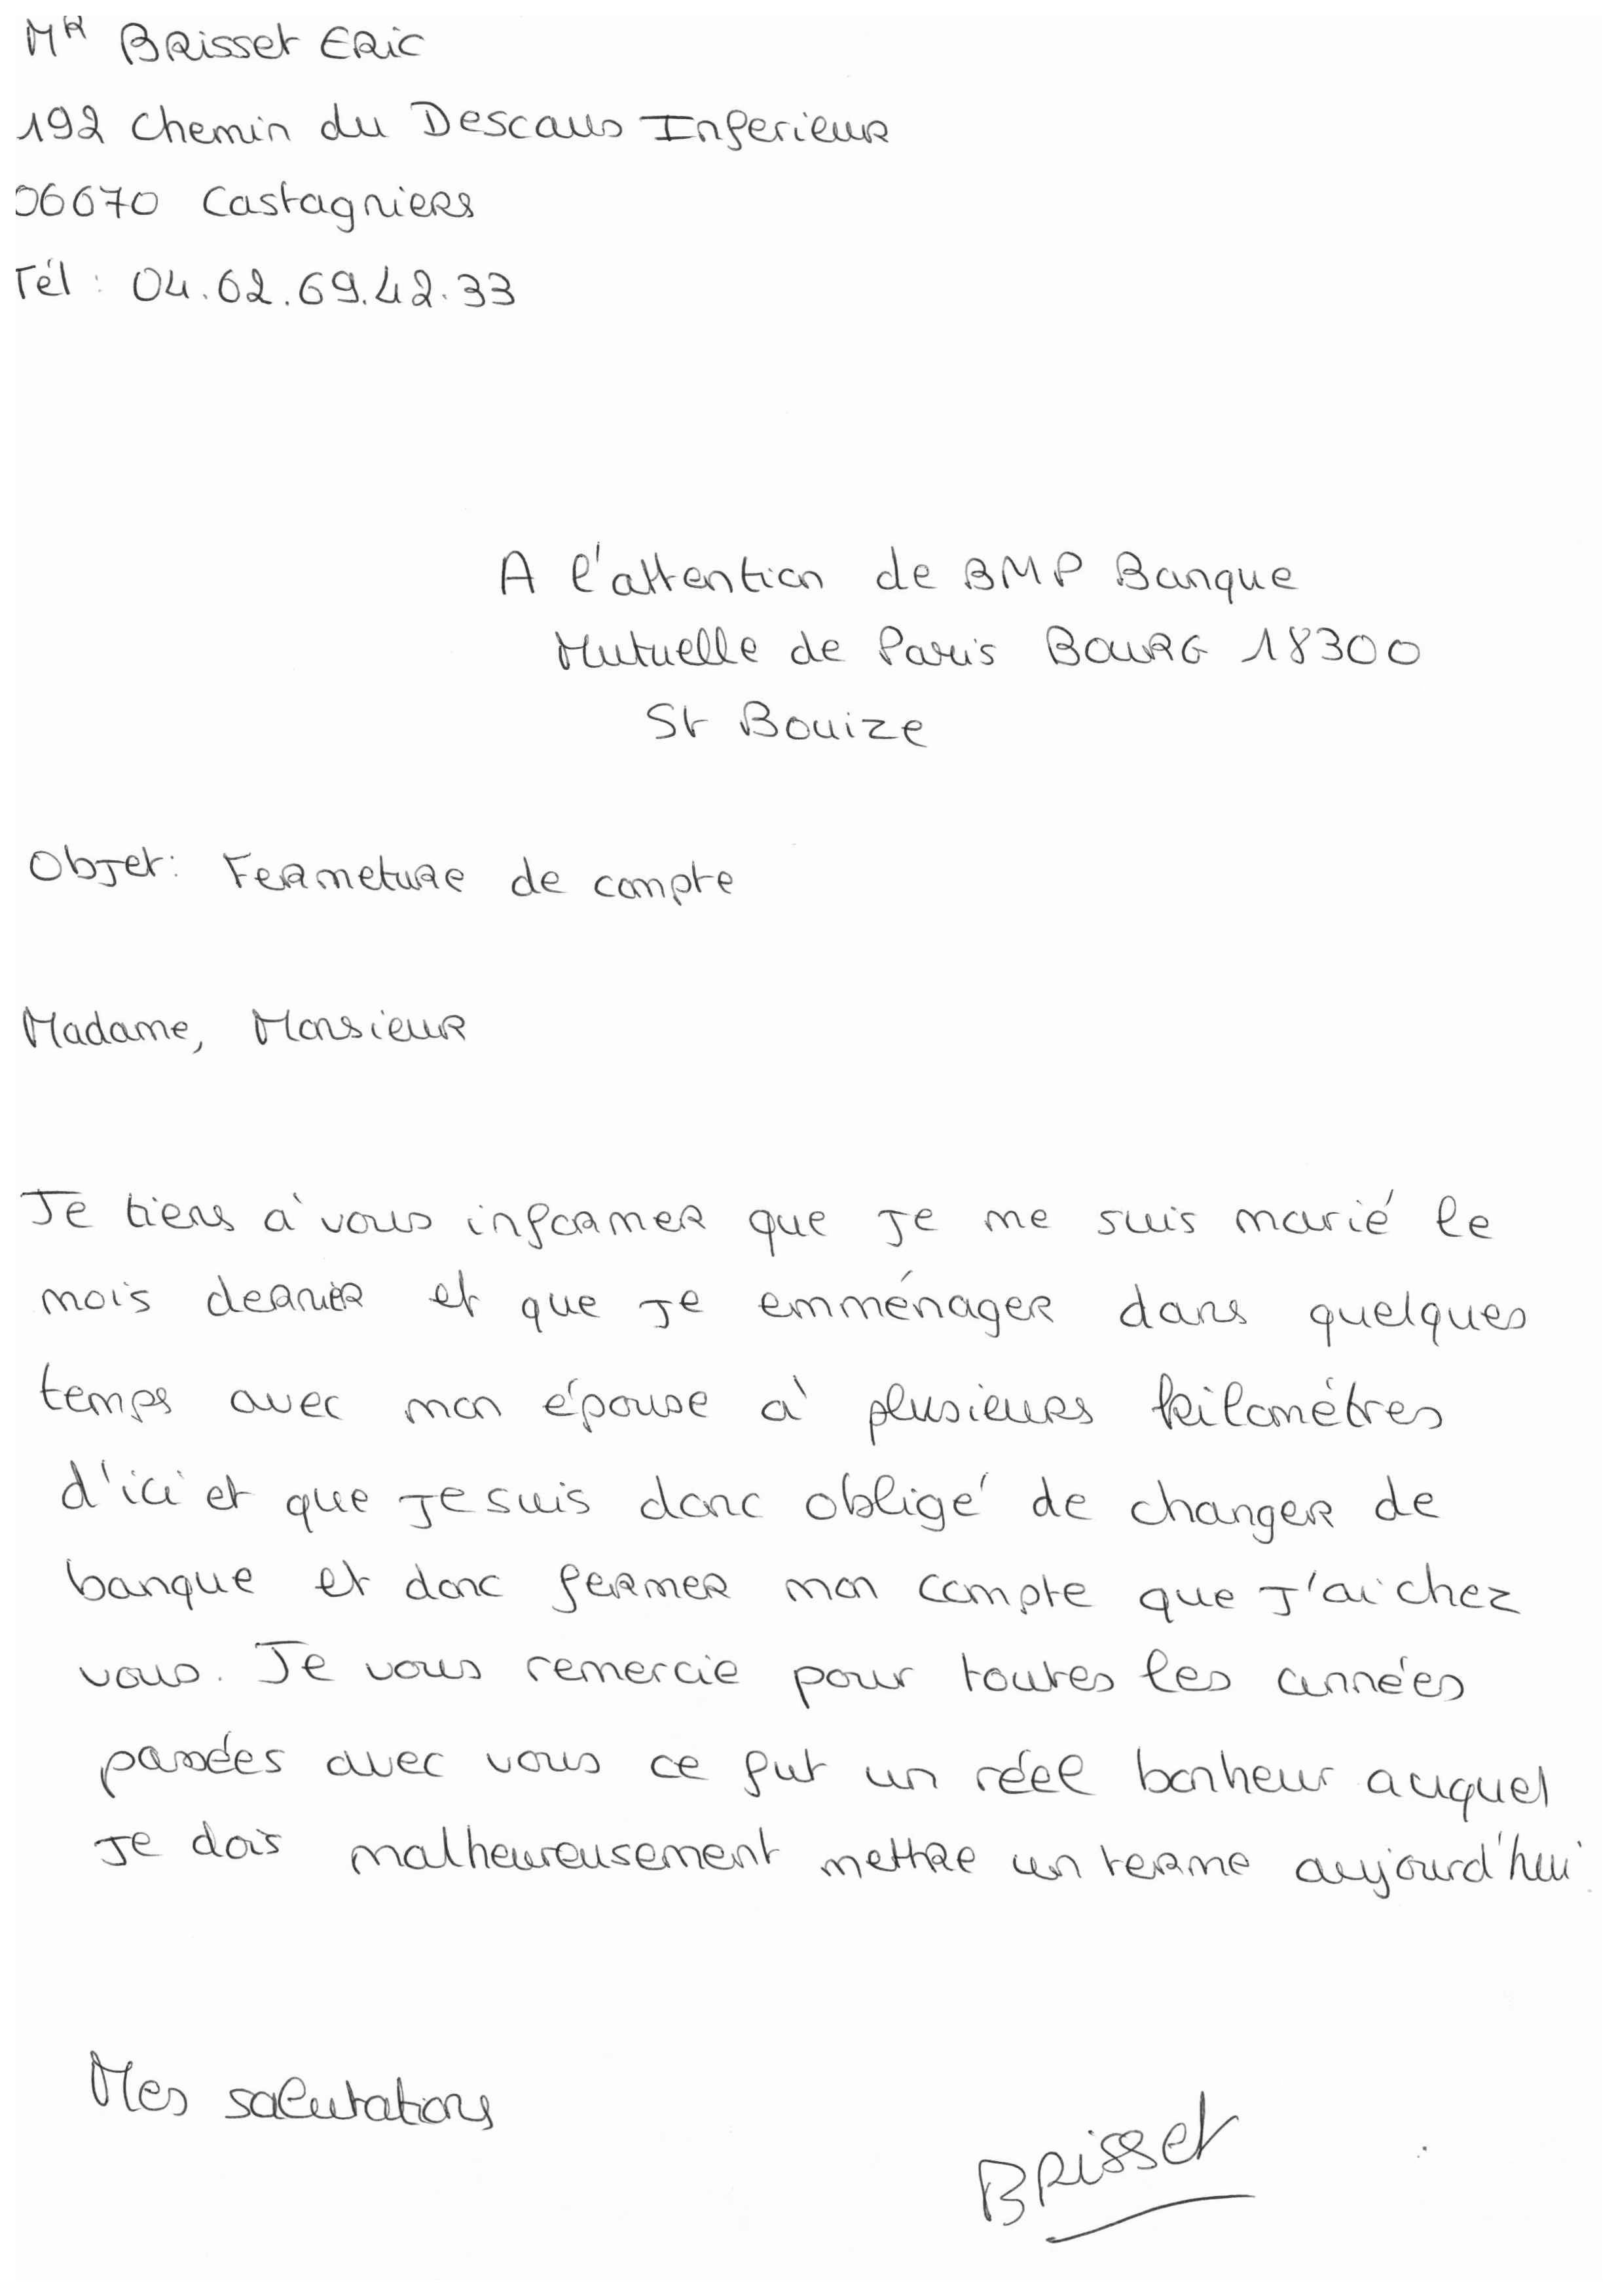 MR Brisset Eric
192 Chemin du Descaus Inferieur
06670 Castagniers
Tél : 04.62.69.42.33
A l'attention de BMP Banque
Mutuelle de Paris Bourg 18300
St Bouize
Objet : Fermeture de compte
Madame, Monsieur
Je tiens à vous informer que je me suis marié le
mois dernier et que je emménager dans quelques
temps avec mon épouse à plusieurs kilomètres
d'ici et que je suis donc obligé de changer de
banque et donc fermer mon compte que j'ai chez
vous. Je vous remercie pour toutes les années
passées avec vous ce fut un réel bonheur auquel
je dois malheureusement mettre un terme aujourd'hui.
Mes salutations
Brisset